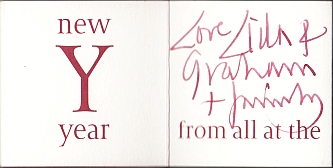 new
Y
year
Love
Graham
+
from all at the